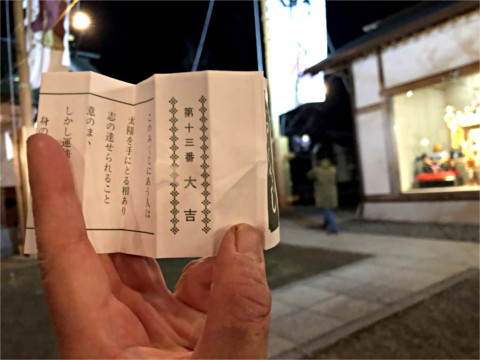 第十三番 大吉
このみくじにあう人は
太陽を手にとる相あり
志の達せられること
意のまゝ
しかし運勢
身の